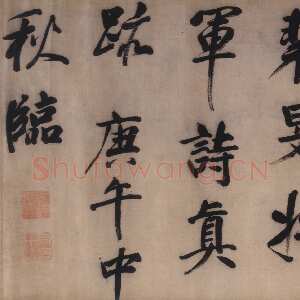 裴旻將
軍詩真
跡庚午中
秋臨
Shufawang.CN